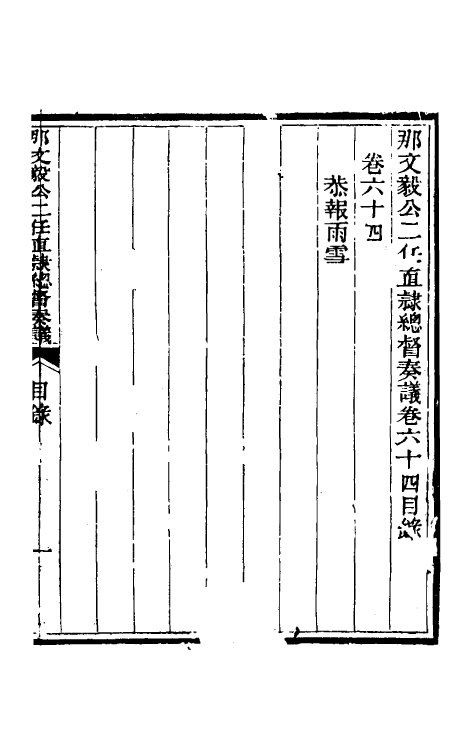 那文毅公二任直隸總督奏議卷六十四目錄
卷六十四
恭報雨雪
那文毅公二任直隸總督奏議
目錄
一